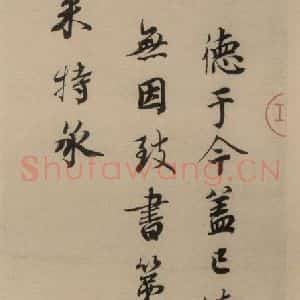 德于今盖已
無因致書第
来特承
ShufaWang.CN